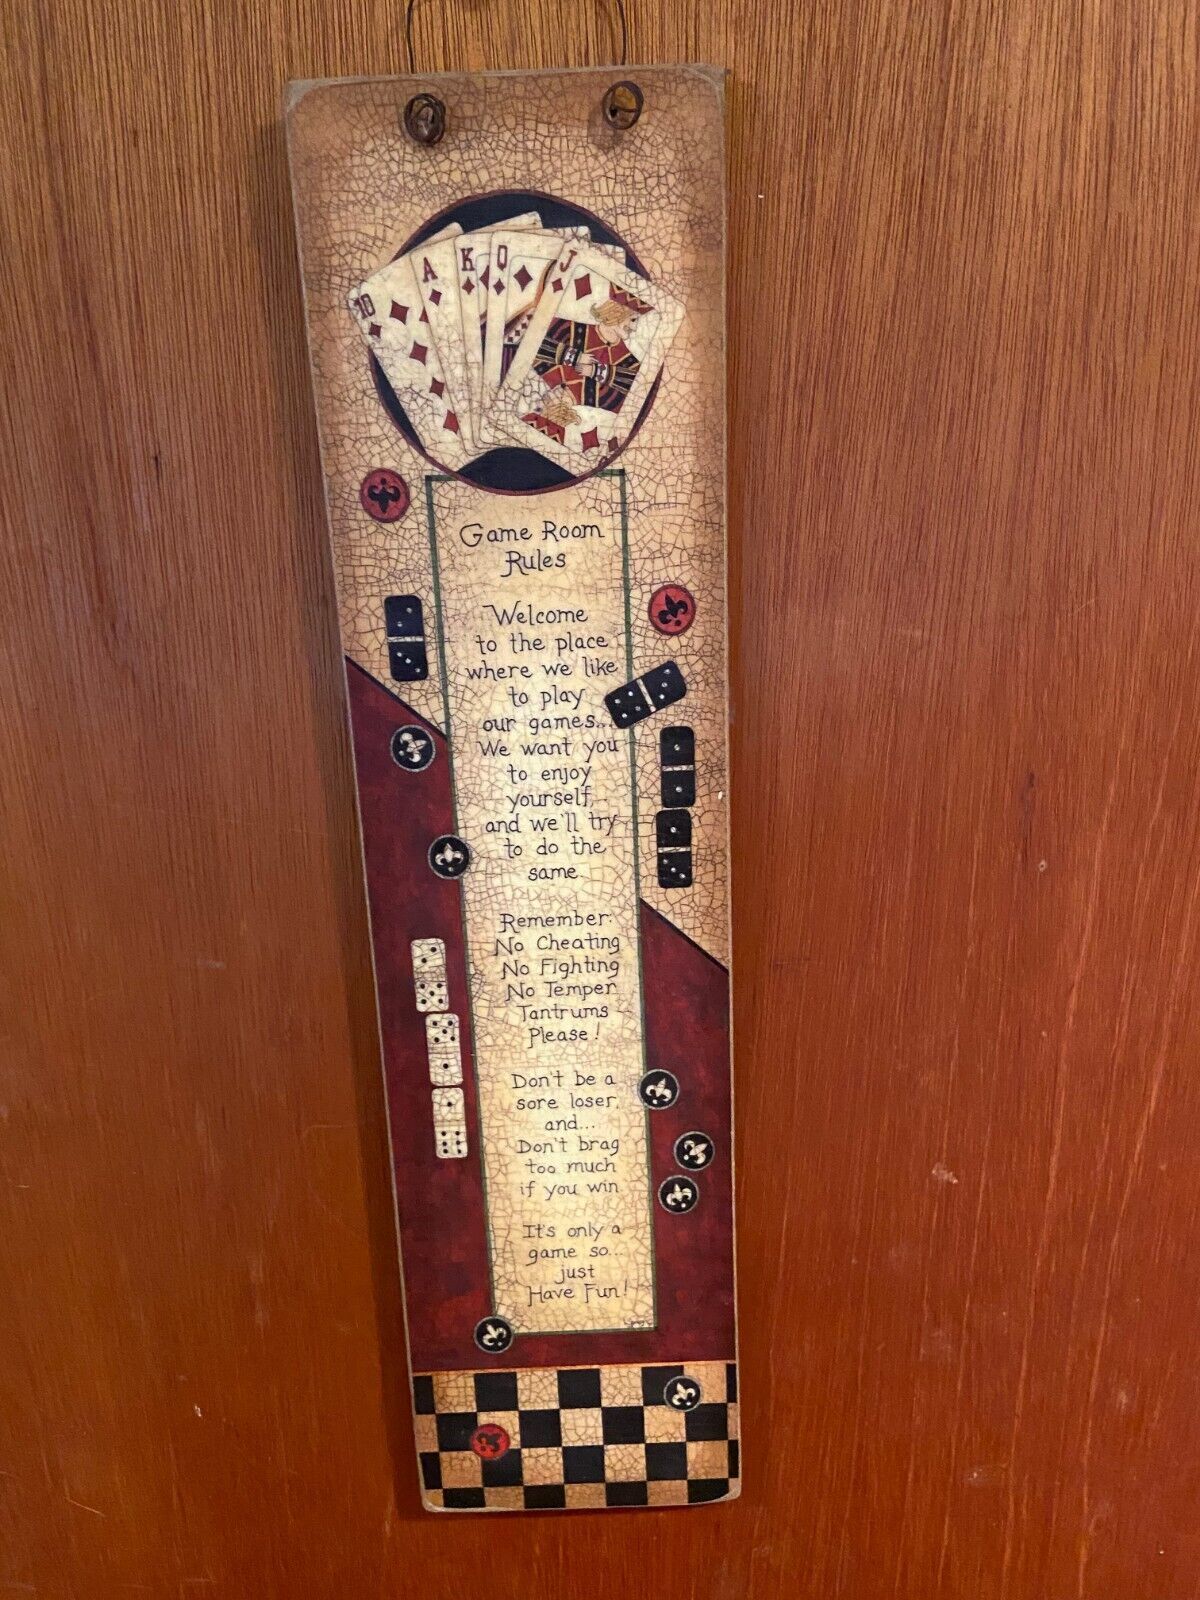 10 A K Q J
Game Room
Rules
Welcome
to the place
where we like
to play
our games...
We want you
to enjoy
yourself,
and we'll try
to do the
same.
Remember:
No Cheating
No Fighting
No Temper
Tantrums
Please!
Don't be a
sore loser,
and...
Don't brag
too much
if you win
It's only a
game so...
just
Have Fun!